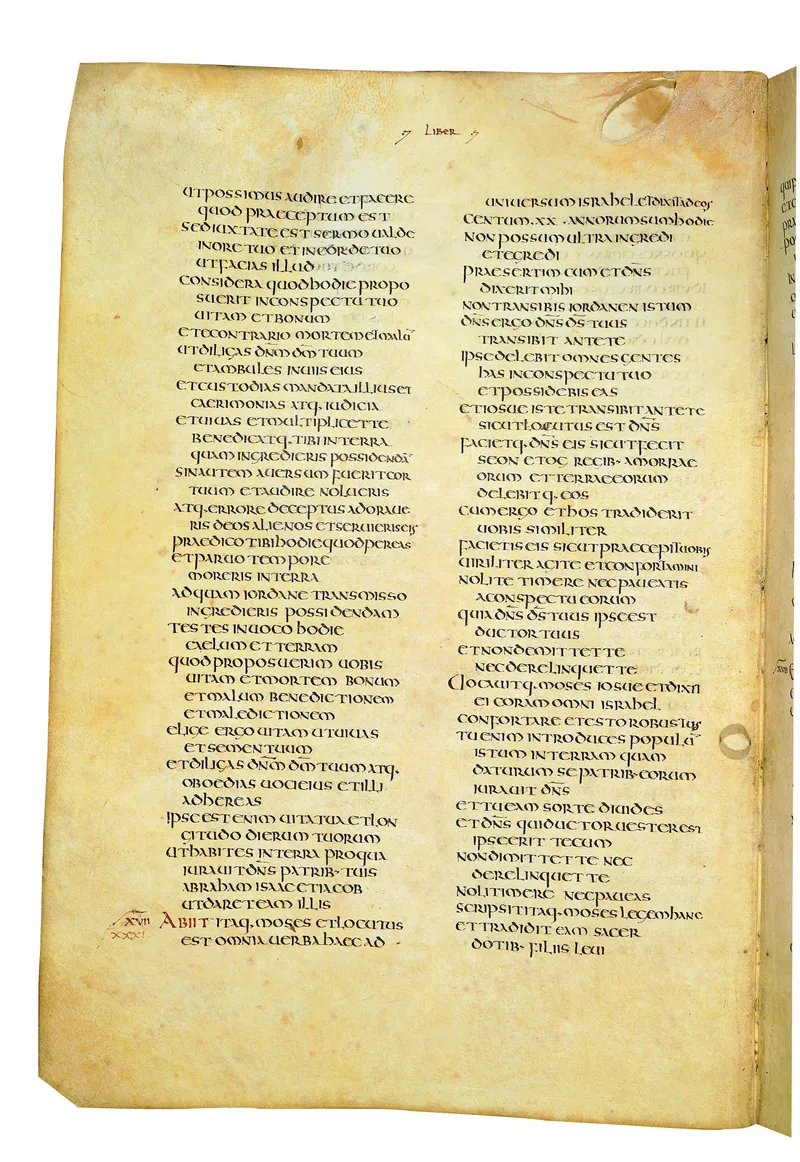 LIBER
UTPOSSIMUS AUDIRE ETFACERE
QUOD PRAECEPTUM EST
SED IUXTA TE EST SERMO UALDE
IN ORE TUO ET IN CORDE TUO
UT FACIAS ILLUD
CONSIDERA QUOD HODIE PROPO
SUERIT IN CONSPECTU TUO
UITAM ET BONUM
ET E CONTRARIO MORTEM ET MALŪ
UT DILIGAS DN̄M D̄M TUUM
ET AMBULES IN UIIS EIUS
ET CUSTODIAS MANDATA ILLIUS ET
CAERIMONIAS ATQ· IUDICIA
ET UIUAS ET MULTIPLICET TE
BENEDICATQ· TIBI IN TERRA
QUAM INGREDIERIS POSSIDENDĀ
SIN AUTEM AUERSUM FUERIT COR
TUUM ET AUDIRE NOLUERIS
ATQ· ERRORE DECEPTUS ADORAUE
RIS DEOS ALIENOS ET SERUIERIS EIS
PRAEDICO TIBI HODIE QUOD PEREAS
ET PARUO TEMPORE
MORERIS IN TERRA
AD QUAM IORDANE TRANSMISSO
INGREDIERIS POSSIDENDAM
TESTES INUOCO HODIE
CAELUM ET TERRAM
QUOD PROPOSUERIM UOBIS
UITAM ET MORTEM BONUM
ET MALUM BENEDICTIONEM
ET MALEDICTIONEM
ELIGE ERGO UITAM UT UIUAS
ET SEMEN TUUM
ET DILIGAS DN̄M D̄M TUUM ATQ·
OBOEDIAS UOCI EIUS ET ILLI
ADHEREAS
IPSE EST ENIM UITA TUA ET LON
GITUDO DIERUM TUORUM
UT HABITES IN TERRA PRO QUA
IURAUIT DN̄S PATRIB· TUIS
ABRAHAM ISAAC ET IACOB
UT DARET EAM ILLIS
XVII ABIIT ITAQ· MOSES ET LOCUTUS
XXXI EST OMNIA UERBA HAEC AD
UNIUERSUM ISRAHEL ET DIXIT AD EOS
CENTUM · XX · ANNORUM SUM HODIE
NON POSSUM ULTRA INGREDI
ET EGREDI
PRAESERTIM CUM ET DN̄S
DIXERIT MIHI
NON TRANSIBIS IORDANEN ISTUM
DN̄S ERGO DN̄S D̄S TUUS
TRANSIBIT ANTE TE
IPSE DELEBIT OMNES GENTES
HAS IN CONSPECTU TUO
ET POSSIDEBIS EAS
ET IOSUE ISTE TRANSIBIT ANTE TE
SICUT LOCUTUS EST DN̄S
FACIETQ· DN̄S EIS SICUT FECIT
SEON ET OG REGIB· AMORRAE
ORUM ET TERRAE EORUM
DELEBITQ· EOS
CUM ERGO ET HOS TRADIDERIT
UOBIS SIMILITER
FACIETIS EIS SICUT PRAECEPI UOBIS
UIRILITER AGITE ET CONFORTAMINI
NOLITE TIMERE NEC PAUEATIS
A CONSPECTU EORUM
QUIA DN̄S D̄S TUUS IPSE EST
DUCTOR TUUS
ET NON DEMITTET TE
NEC DERELINQUET TE
UOCAUITQ· MOSES IOSUE ET DIXIT
EI CORAM OMNI ISRAHEL
CONFORTARE ET ESTO ROBUSTUS
TU ENIM INTRODUCES POPULŪ
ISTUM IN TERRAM QUAM
DATURUM SE PATRIB· EORUM
IURAUIT DN̄S
ET TU EAM SORTE DIUIDES
ET DN̄S QUI DUCTOR UESTER EST
IPSE ERIT TECUM
NON DIMITTET TE NEC
DERELINQUET TE
NOLI TIMERE NEC PAUEAS
SCRIPSIT ITAQ· MOSES LEGEM HANC
ET TRADIDIT EAM SACER
DOTIB· FILIIS LEUI